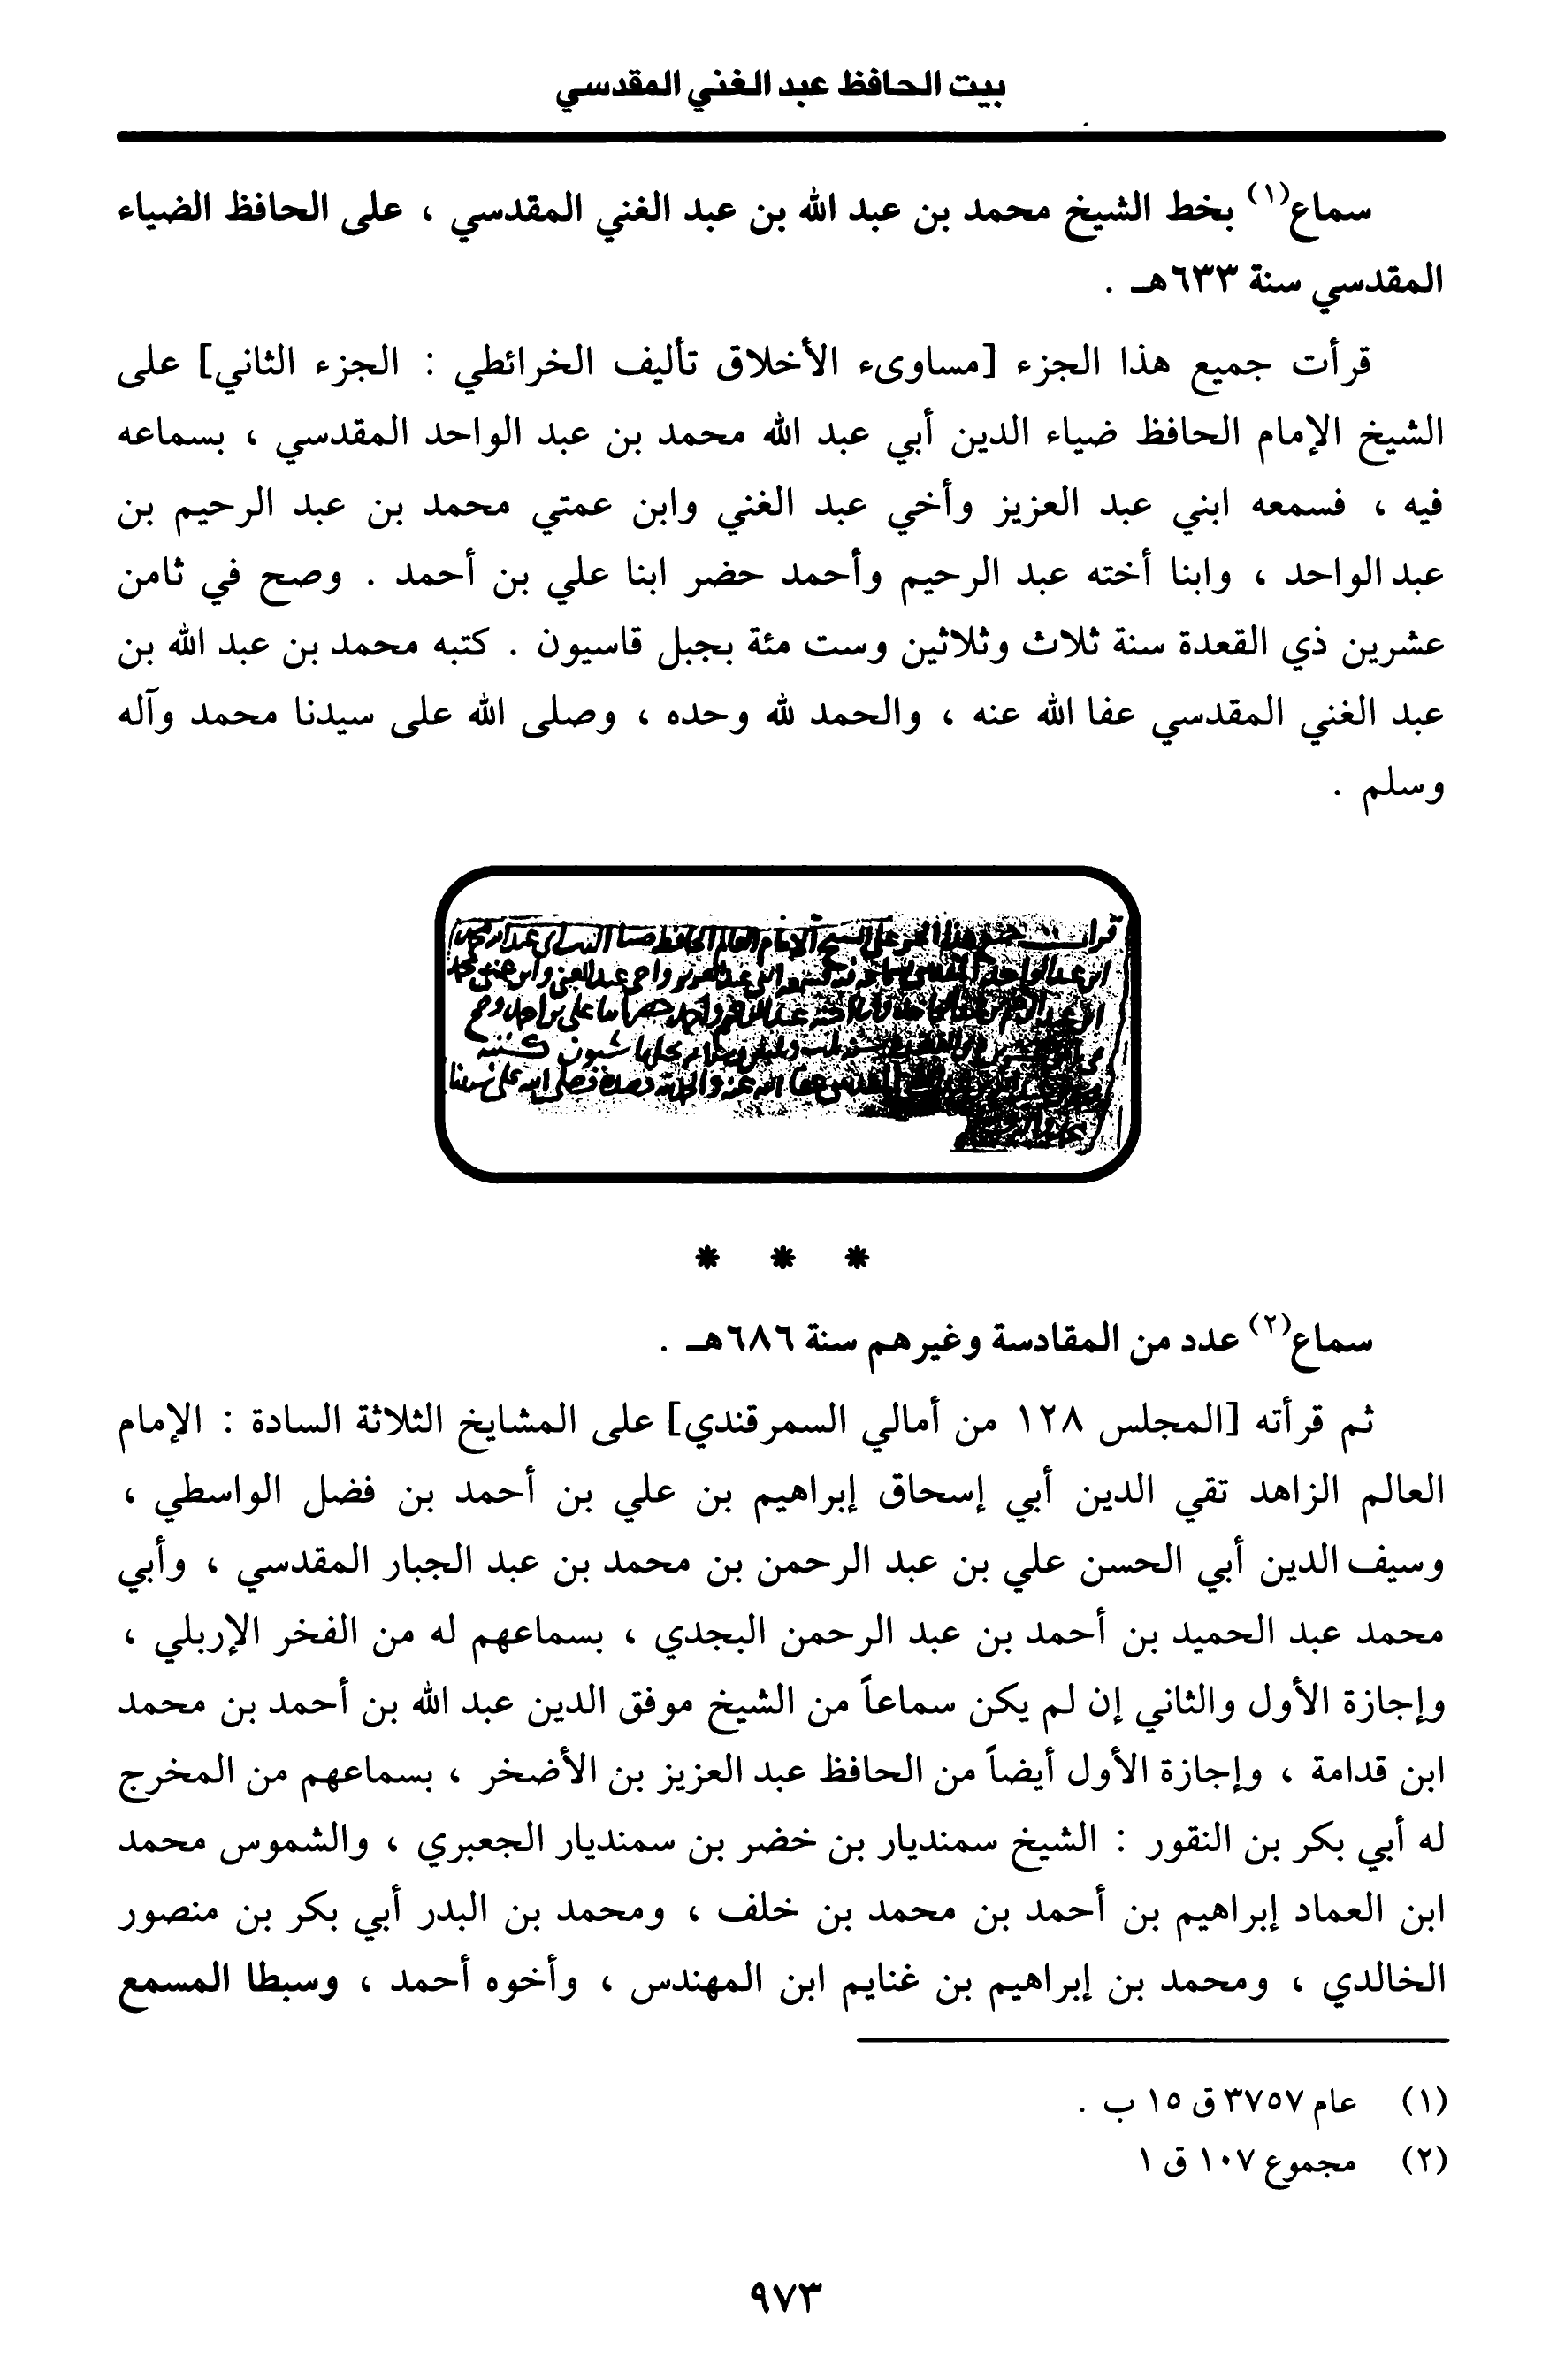 بيت الحافظ عبد الغني المقدسي
سماع(١) بخط الشيخ محمد بن عبد الله بن عبد الغني المقدسي ، على الحافظ الضياء
المقدسي سنة ٦٣٣هـ .
قرأت جميع هذا الجزء [مساوىء الأخلاق تأليف الخرائطي : الجزء الثاني] على
الشيخ الإمام الحافظ ضياء الدين أبي عبد الله محمد بن عبد الواحد المقدسي ، بسماعه
فيه ، فسمعه ابني عبد العزيز وأخي عبد الغني وابن عمتي محمد بن عبد الرحيم بن
عبد الواحد ، وابنا أخته عبد الرحيم وأحمد حضر ابنا علي بن أحمد . وصح في ثامن
عشرين ذي القعدة سنة ثلاث وثلاثين وست مئة بجبل قاسيون . كتبه محمد بن عبد الله بن
عبد الغني المقدسي عفا الله عنه ، والحمد لله وحده ، وصلى الله على سيدنا محمد وآله
وسلم .
* * *
سماع(٢) عدد من المقادسة وغيرهم سنة ٦٨٦هـ .
ثم قرأته [المجلس ١٢٨ من أمالي السمرقندي] على المشايخ الثلاثة السادة : الإمام
العالم الزاهد تقي الدين أبي إسحاق إبراهيم بن علي بن أحمد بن فضل الواسطي ،
وسيف الدين أبي الحسن علي بن عبد الرحمن بن محمد بن عبد الجبار المقدسي ، وأبي
محمد عبد الحميد بن أحمد بن عبد الرحمن البجدي ، بسماعهم له من الفخر الإربلي ،
وإجازة الأول والثاني إن لم يكن سماعاً من الشيخ موفق الدين عبد الله بن أحمد بن محمد
ابن قدامة ، وإجازة الأول أيضاً من الحافظ عبد العزيز بن الأضخر ، بسماعهم من المخرج
له أبي بكر بن النقور : الشيخ سمنديار بن خضر بن سمنديار الجعبري ، والشموس محمد
ابن العماد إبراهيم بن أحمد بن محمد بن خلف ، ومحمد بن البدر أبي بكر بن منصور
الخالدي ، ومحمد بن إبراهيم بن غنايم ابن المهندس ، وأخوه أحمد ، وسبطا المسمع
(١) عام ٣٧٥٧ ق ١٥ ب .
(٢) مجموع ١٠٧ ق ١
٩٧٣